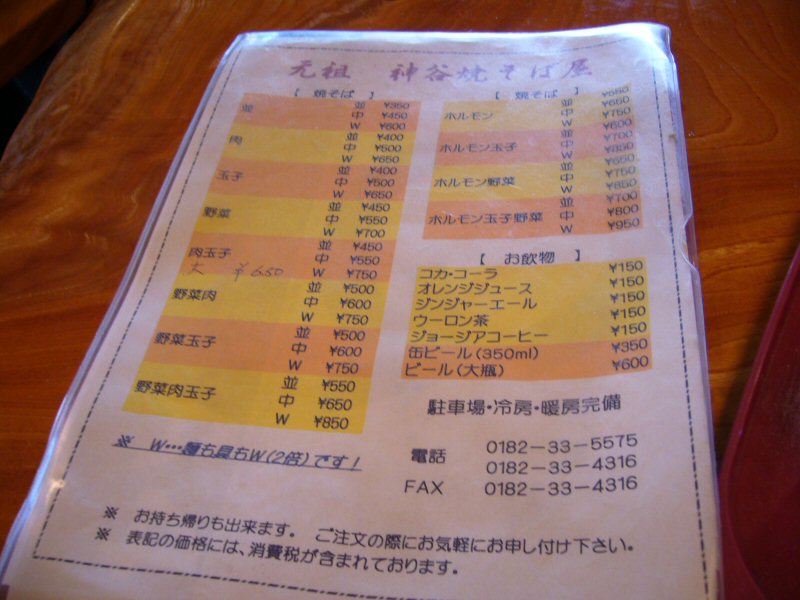 元祖 神谷焼そば屋
【 焼そば 】
並 並 ¥350
中 ¥450
W ¥600
肉 並 ¥400
中 ¥500
W ¥650
玉子 並 ¥400
中 ¥500
W ¥650
野菜 並 ¥450
中 ¥550
W ¥700
肉玉子 並 ¥450
中 ¥550
大 ¥650
W ¥750
野菜肉 並 ¥500
中 ¥600
W ¥750
野菜玉子 並 ¥500
中 ¥600
W ¥750
野菜肉玉子 並 ¥550
中 ¥650
W ¥850
※ W…麺も具もW(2倍)です!
【 焼そば 】
ホルモン 並 ¥550
中 ¥650
W ¥750
ホルモン玉子 並 ¥600
中 ¥700
W ¥850
ホルモン野菜 並 ¥650
中 ¥750
W ¥850
ホルモン玉子野菜 並 ¥700
中 ¥800
W ¥950
【 お飲物 】
コカ・コーラ ¥150
オレンジジュース ¥150
ジンジャーエール ¥150
ウーロン茶 ¥150
ジョージアコーヒー ¥150
缶ビール(350ml) ¥350
ビール(大瓶) ¥600
駐車場・冷房・暖房完備
電話 0182-33-5575
0182-33-4316
FAX 0182-33-4316
※ お持ち帰りも出来ます。 ご注文の際にお気軽にお申し付け下さい。
※ 表記の価格には、消費税が含まれております。